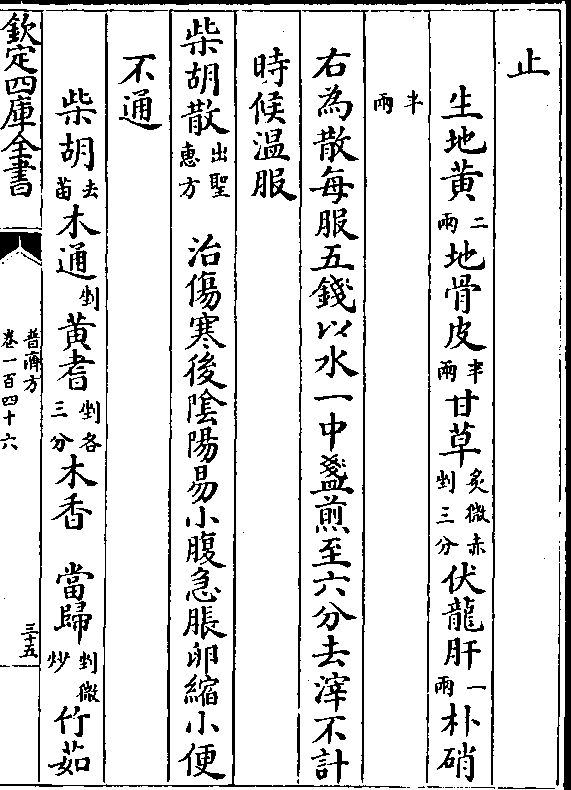 止
生地黄二兩地骨皮半兩甘草炙微赤剉三分伏龍肝一兩朴硝
半兩
右為散每服五錢以水一中盞煎至六分去滓不計
時候温服
柴胡散出聖惠方 治傷寒後隂陽易小腹急脹卵縮小便
不通
柴胡去苗木通剉黄耆剉各三分木香 當歸剉微炒竹茹
欽定四庫全書
普濟方
卷一百四十六
三十五